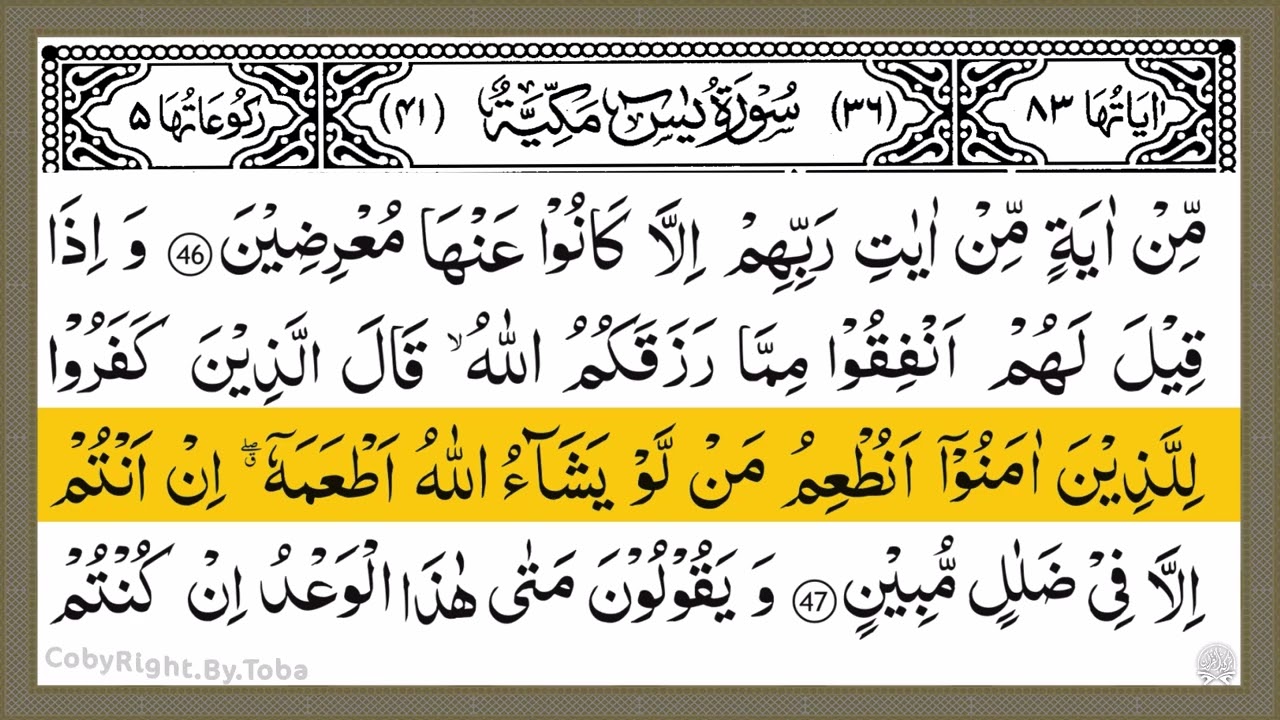 اٰيَاتُهَا ٨٣ (٣٦) سُوْرَةُ يٰسٓ مَكِّيَّةٌ (٤١) رُكُوْعَاتُهَا ۵
مِّنْ اٰيَةٍ مِّنْ اٰيٰتِ رَبِّهِمْ اِلَّا كَانُوْا عَنْهَا مُعْرِضِيْنَ 46 وَ اِذَا
قِيْلَ لَهُمْ اَنْفِقُوْا مِمَّا رَزَقَكُمُ اللّٰهُ ۙ قَالَ الَّذِيْنَ كَفَرُوْا
لِلَّذِيْنَ اٰمَنُوْۤا اَنُطْعِمُ مَنْ لَّوْ يَشَآءُ اللّٰهُ اَطْعَمَهٗۤ ۖۗ اِنْ اَنْتُمْ
اِلَّا فِيْ ضَلٰلٍ مُّبِيْنٍ 47 وَ يَقُوْلُوْنَ مَتٰى هٰذَا الْوَعْدُ اِنْ كُنْتُمْ
CobyRight.By.Toba